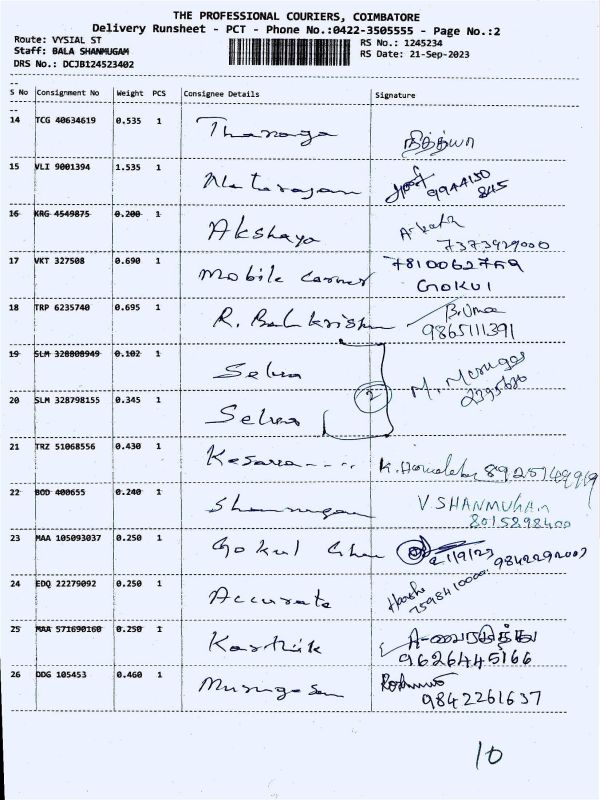 THE PROFESSIONAL COURIERS, COIMBATORE
Delivery Runsheet - PCT - Phone No.:0422-3505555 - Page No.:2
Route: VYSIAL ST RS No.: 1245234
Staff: BALA SHANMUGAM RS Date: 21-Sep-2023
DRS No.: DCJB124523402
S No Consignment No Weight PCS Consignee Details Signature
14 TCG 40634619 0.535 1 Thanaga நித்யா
15 VLI 9001394 1.535 1 Natarajan 9944150
845
16 KRG 4549875 0.200 1 Akshaya
7373929000
17 VKT 327508 0.690 1 Mobile Corner 7810062769
GOKUL
18 TRP 6235740 0.695 1 R. Balakrishn B.Uma
9865111391
19 SLM 328808949 0.102 1 Selva M. Muruges
20 SLM 328798155 0.345 1 Selva 2
21 TRZ 51068556 0.430 1 Kesava....
22 BOD 400655 0.240 1 Shanmugam V SHANMUGAM
8015898400
23 MAA 105093037 0.250 1 Gokul 21/9/23 9842292007
24 EDQ 22279092 0.250 1 Accurate Harshi
7598410000
25 MAA 571690160 0.250 1 Karthik
9626445166
26 DDG 105453 0.460 1 Murugesan
9842261637
10